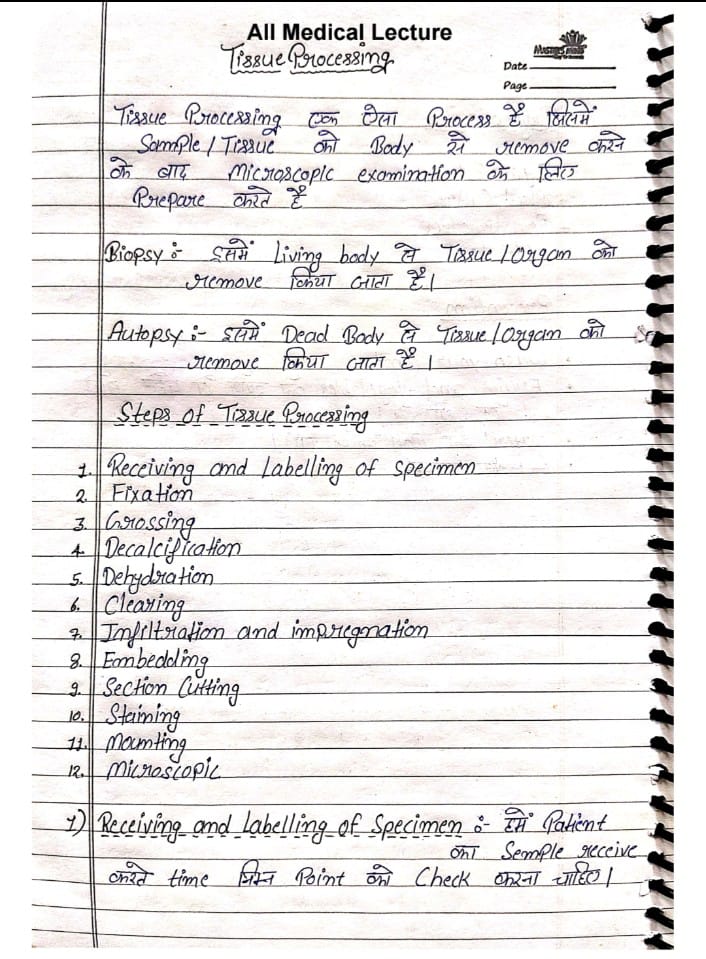 All Medical Lecture
Tissue Processing
Date
Page
Tissue Processing एक ऐसा Process है जिसमें
Sample / Tissue को Body से remove करने
के बाद Microscopic examination के लिए
Prepare करते है
Biopsy :- इसमें Living body से Tissue / Organ को
remove किया जाता है।
Autopsy :- इसमें Dead Body से Tissue / Organ को
remove किया जाता है ।
Steps of Tissue Processing
1. Receiving and Labelling of specimen
2. Fixation
3. Grossing
4. Decalcification
5. Dehydration
6. Clearing
7. Infiltration and impregnation
8. Embedding
9. Section Cutting
10. Staining
11. Mounting
12. Microscopic
1) Receiving and Labelling of Specimen :- हमें Patient
का Semple receive
करते time निम्न Point को Check करना चाहिए।